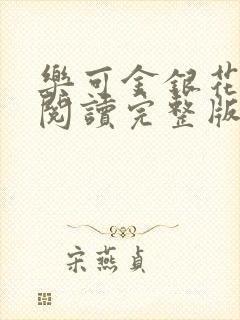 樂可金銀花
閱讀完整版
宋燕貞